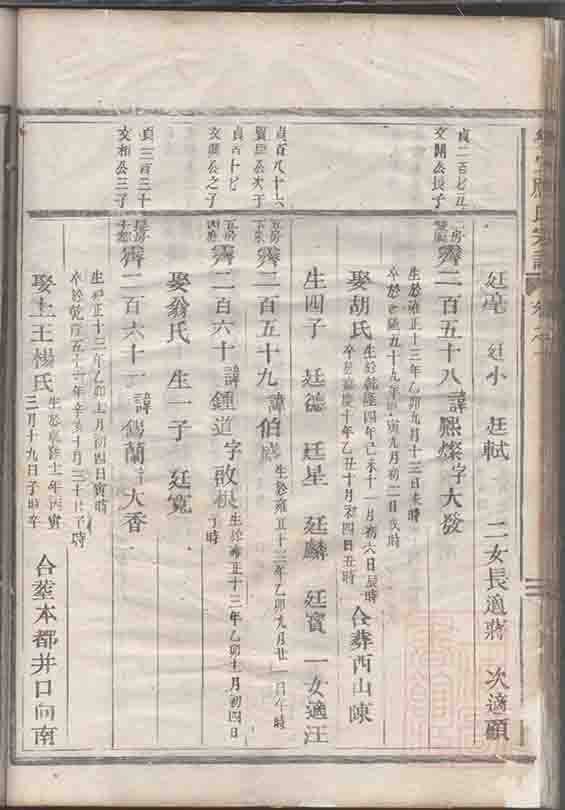 氏宗譜
廷毫 廷小 廷軾 二女長適蔣 次適顧
貞二百七五
文開公長子
房霽二百五十八 諱熙燦 字大發
生於雍正十三年乙卯九月十三日未時
卒於乾隆五十九年甲寅九月初二日戌時
娶胡氏 生於乾隆四年己未十一月初六日辰時
卒於嘉慶十年乙丑十月初四日丑時 合葬西山陳
貞百八十六
賢 公次子
生四子 廷德 廷星 廷麟 廷寶 一女適汪
五房霽二百五十九 諱伯 生於雍正十三年乙卯九月廿一日午時
貞百十七
文 公之子
五房霽二百六十 諱鍾道 字啟根 生於雍正十三年乙卯十二月初四日子時
娶翁氏 生一子 廷寬
貞三百三十
文相公三子
房霽二百六十一 諱錫蘭 字大香
生雍正十三年乙卯十二月初四日寅時
卒於乾隆五十六年辛亥十月三十日子時
娶上王楊氏 生於乾隆十一年丙寅
三月十九日子時卒 合葬本都井口向南